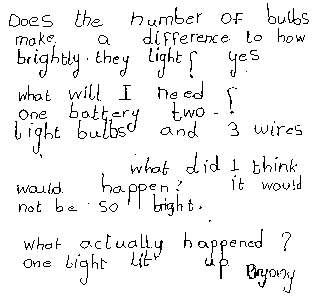 Does the number of bulbs
make a difference to how
brightly they light? yes
what will I need?
one battery two
light bulbs and 3 wires
what did I think
would happen? it would
not be so bright.
what actually happened?
one light lit up Bryony